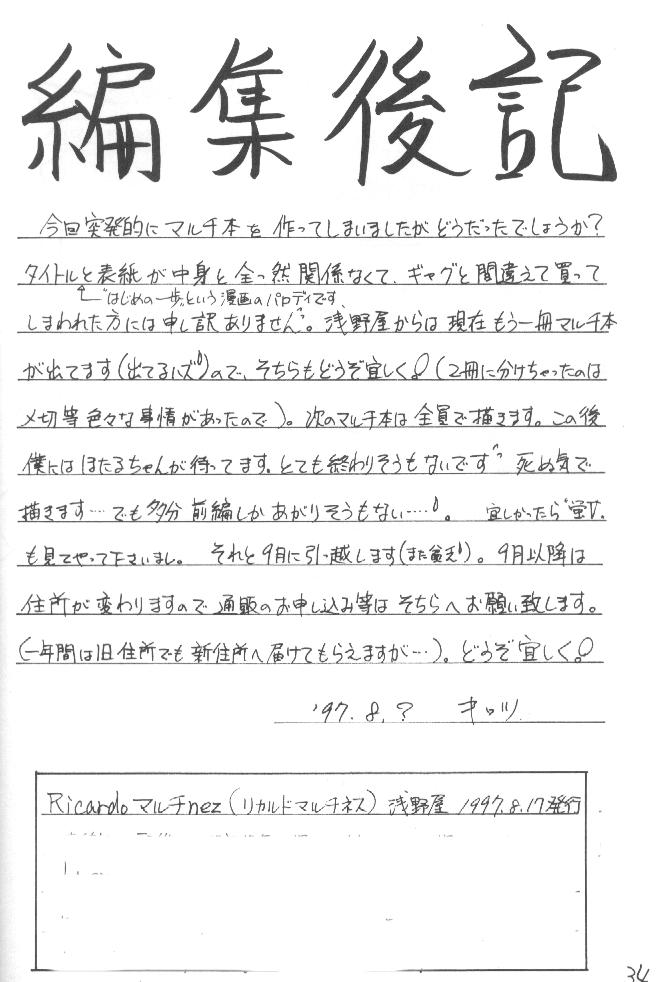 編集後記
今回突発的にマルチ本を作ってしまいましたがどうだったでしょうか?
タイトルと表紙が中身と全っ然関係なくて、ギャグと間違えて買って
"はじめの一歩"という漫画のパロディです、
しまわれた方には申し訳ありません。浅野屋からは現在もう一冊マルチ本
が出てます(出てるハズ)ので、そちらもどうぞ宜しく!(2冊に分けちゃったのは
〆切等色々な事情があったので)。次のマルチ本は全員で描きます。この後
僕にはほたるちゃんが待ってます。とても終わりそうもないです 死ぬ気で
描きます…でも多分前編しかあがりそうもない……。 宜しかったら"蛍Ⅴ"
も見てやって下さいまし。 それと9月に引っ越します(また貧乏)。9月以降は
住所が変わりますので通販のお申し込み等はそちらへお願い致します。
(一年間は旧住所でも新住所へ届けてもらえますが…)。どうぞ宜しく!
'97.8.? キロツ
Ricardoマルチnez(リカルドマルチネス)浅野屋 1997.8.17発行
34